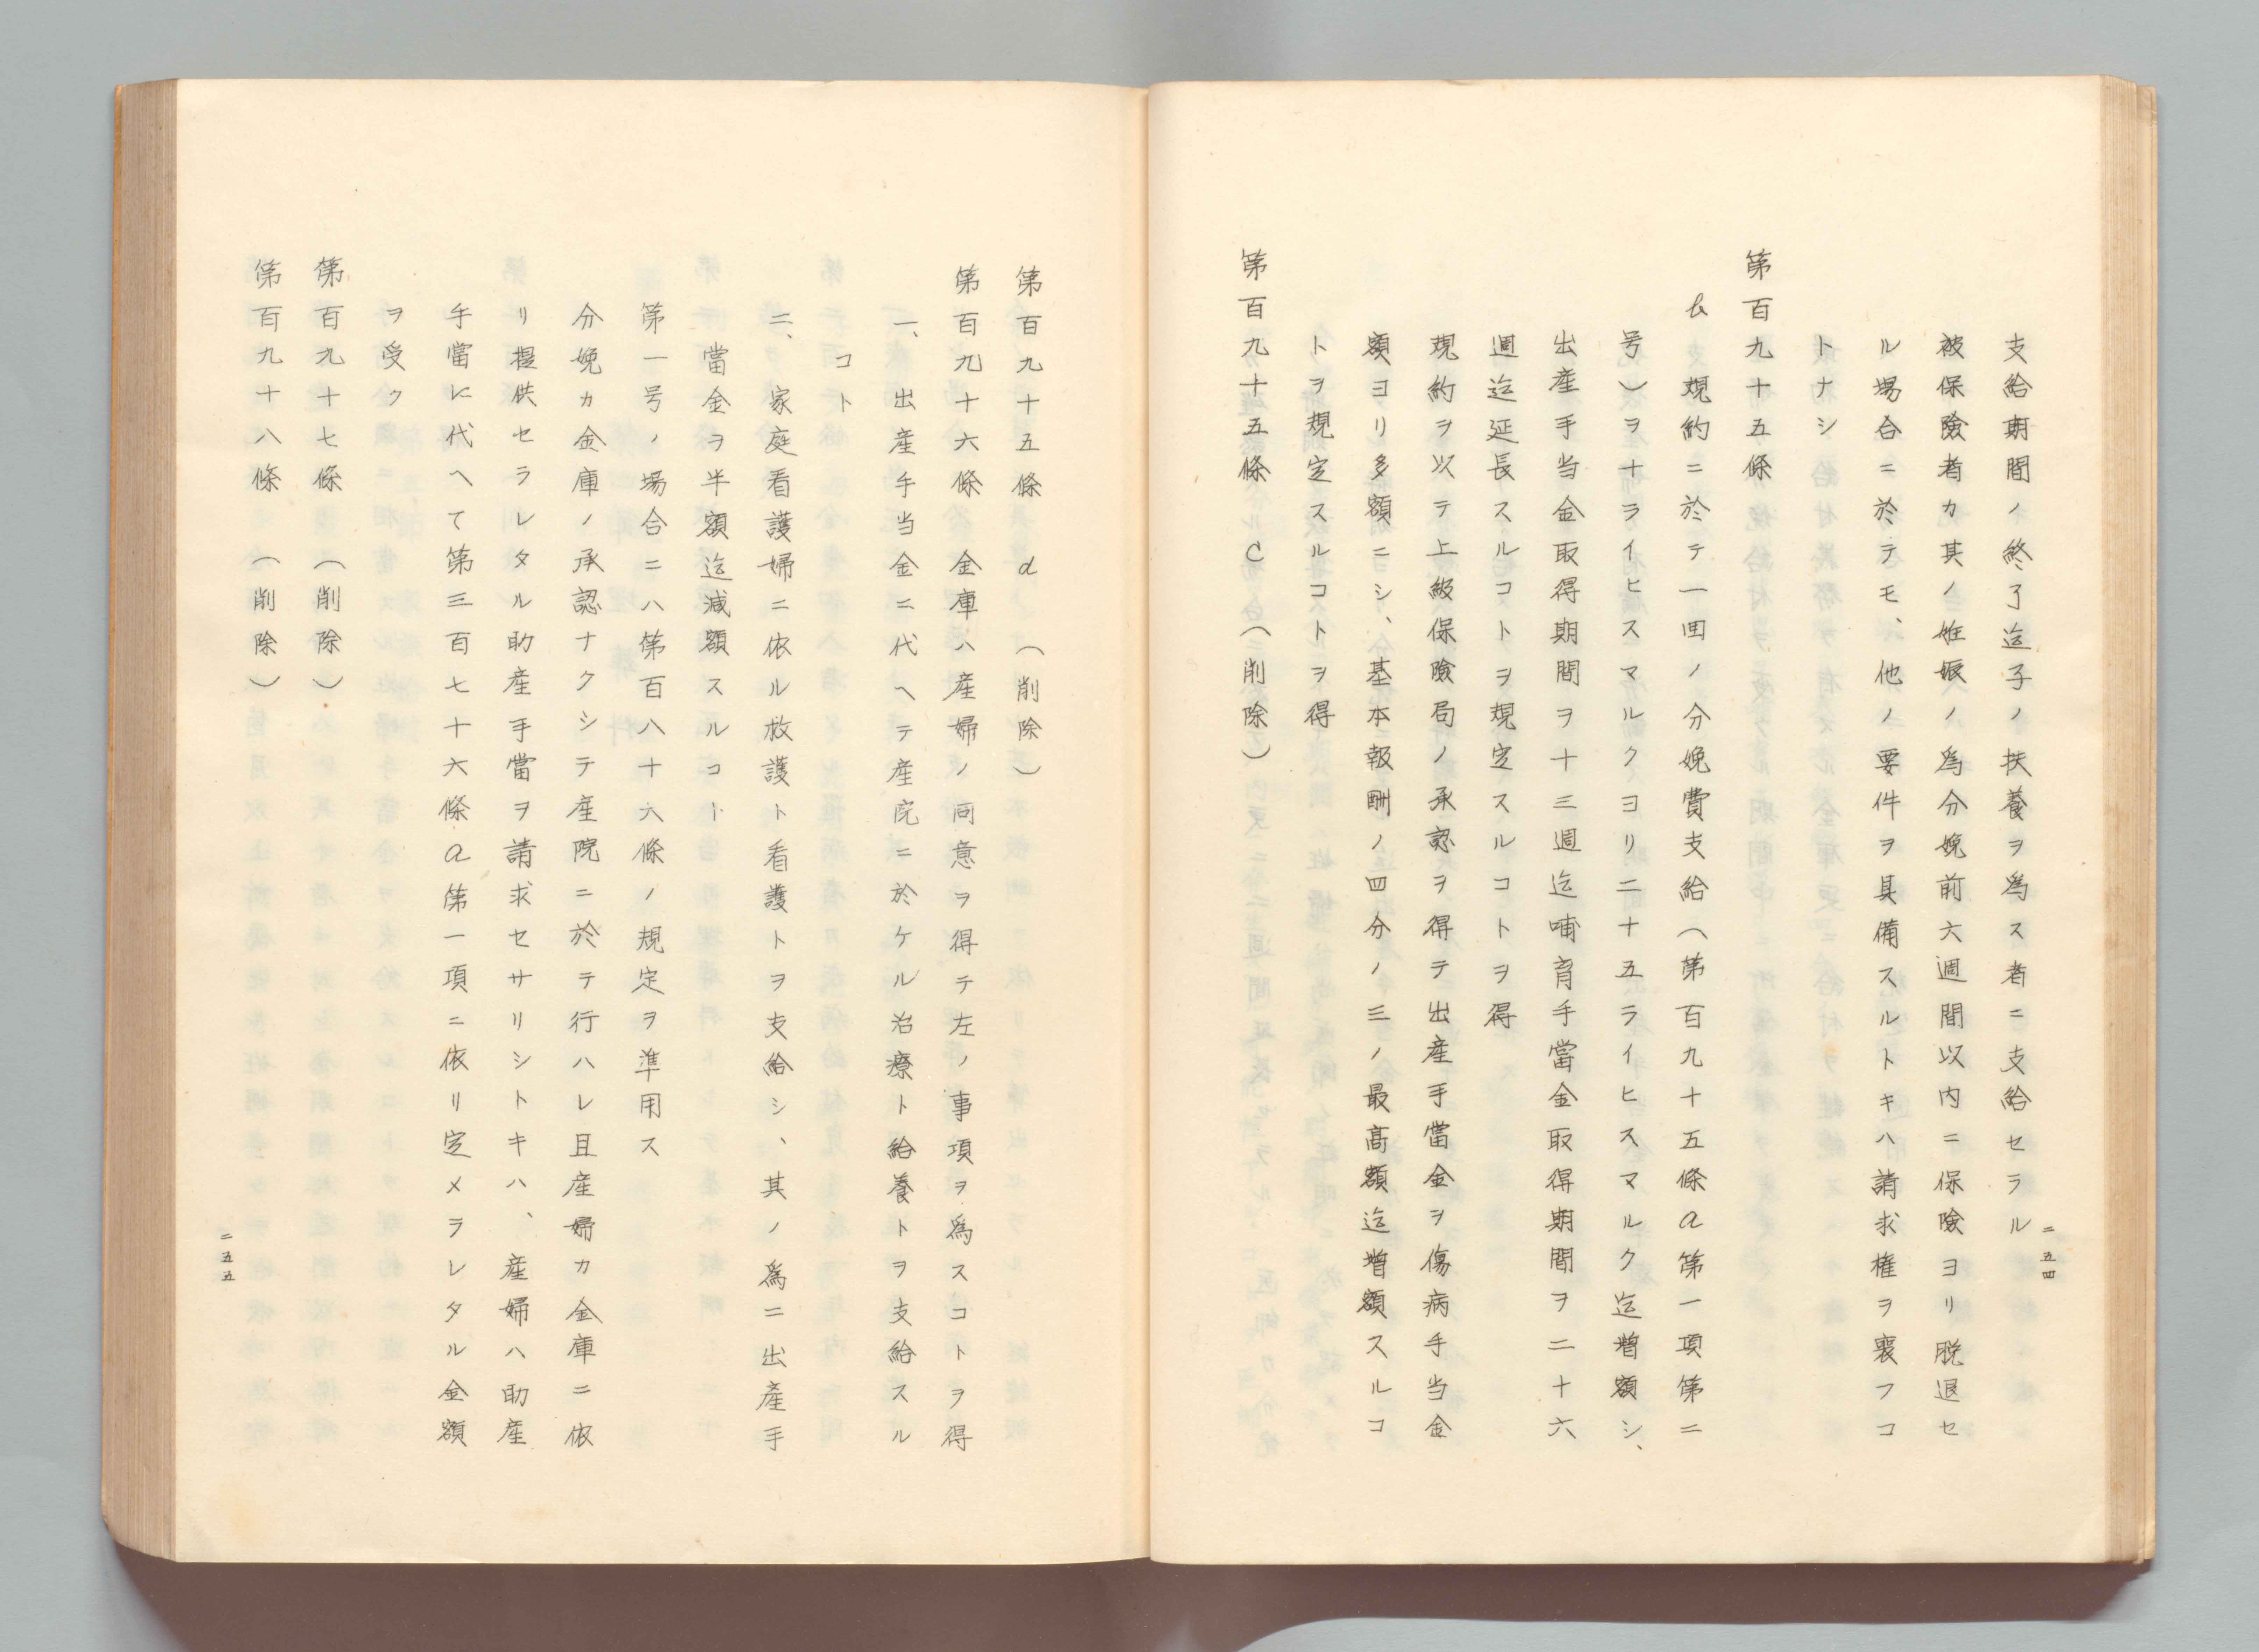 支給期間ノ終了迄子ノ扶養ヲ爲ス者ニ支給セラル
被保險者カ其ノ姙娠ノ爲分娩前六週間以内ニ保險ヨリ脱退セ
ル場合ニ於テモ、他ノ要件ヲ具備スルトキハ請求権ヲ喪フコ
トナシ
第百九十五條
b 規約ニ於テ一囬ノ分娩賞支給(第百九十五條a第一項第二
号)ヲ十ライヒスマルクヨリ二十五ライヒスマルク迄増額シ、
出産手当金取得期間ヲ十三週迄哺育手當金取得期間ヲ二十六
週迄延長スルコトヲ規定スルコトヲ得
規約ヲ以テ上級保險局ノ承認ヲ得テ出産手當金ヲ傷病手当金
額ヨリ多額ニヨシ、基本報酬ノ四分ノ三ノ最高額迄増額スルコ
トヲ規定スルコトヲ得
第百九十五條 C (削除)
二五四
第百九十五條 d (削除)
第百九十六條 金庫ハ産婦ノ同意ヲ得テ左ノ事項ヲ爲スコトヲ得
一、出産手当金ニ代ヘテ産院ニ於ケル治療ト給養トヲ支給スル
コト
二、家庭看護婦ニ依ル救護ト看護トヲ支給シ、其ノ爲ニ出産手
當金ヲ半額迄減額スルコト
第一号ノ場合ニハ第百八十六條ノ規定ヲ準用ス
分娩カ金庫ノ承認ナクシテ産院ニ於テ行ハレ且産婦カ金庫ニ依
リ提供セラレタル助産手當ヲ請求セサリシトキハ、産婦ハ助産
手當に代へて第三百七十六條a第一項ニ依リ定メラレタル金額
ヲ受ク
第百九十七條 (削除)
第百九十八條 (削除)
二五五